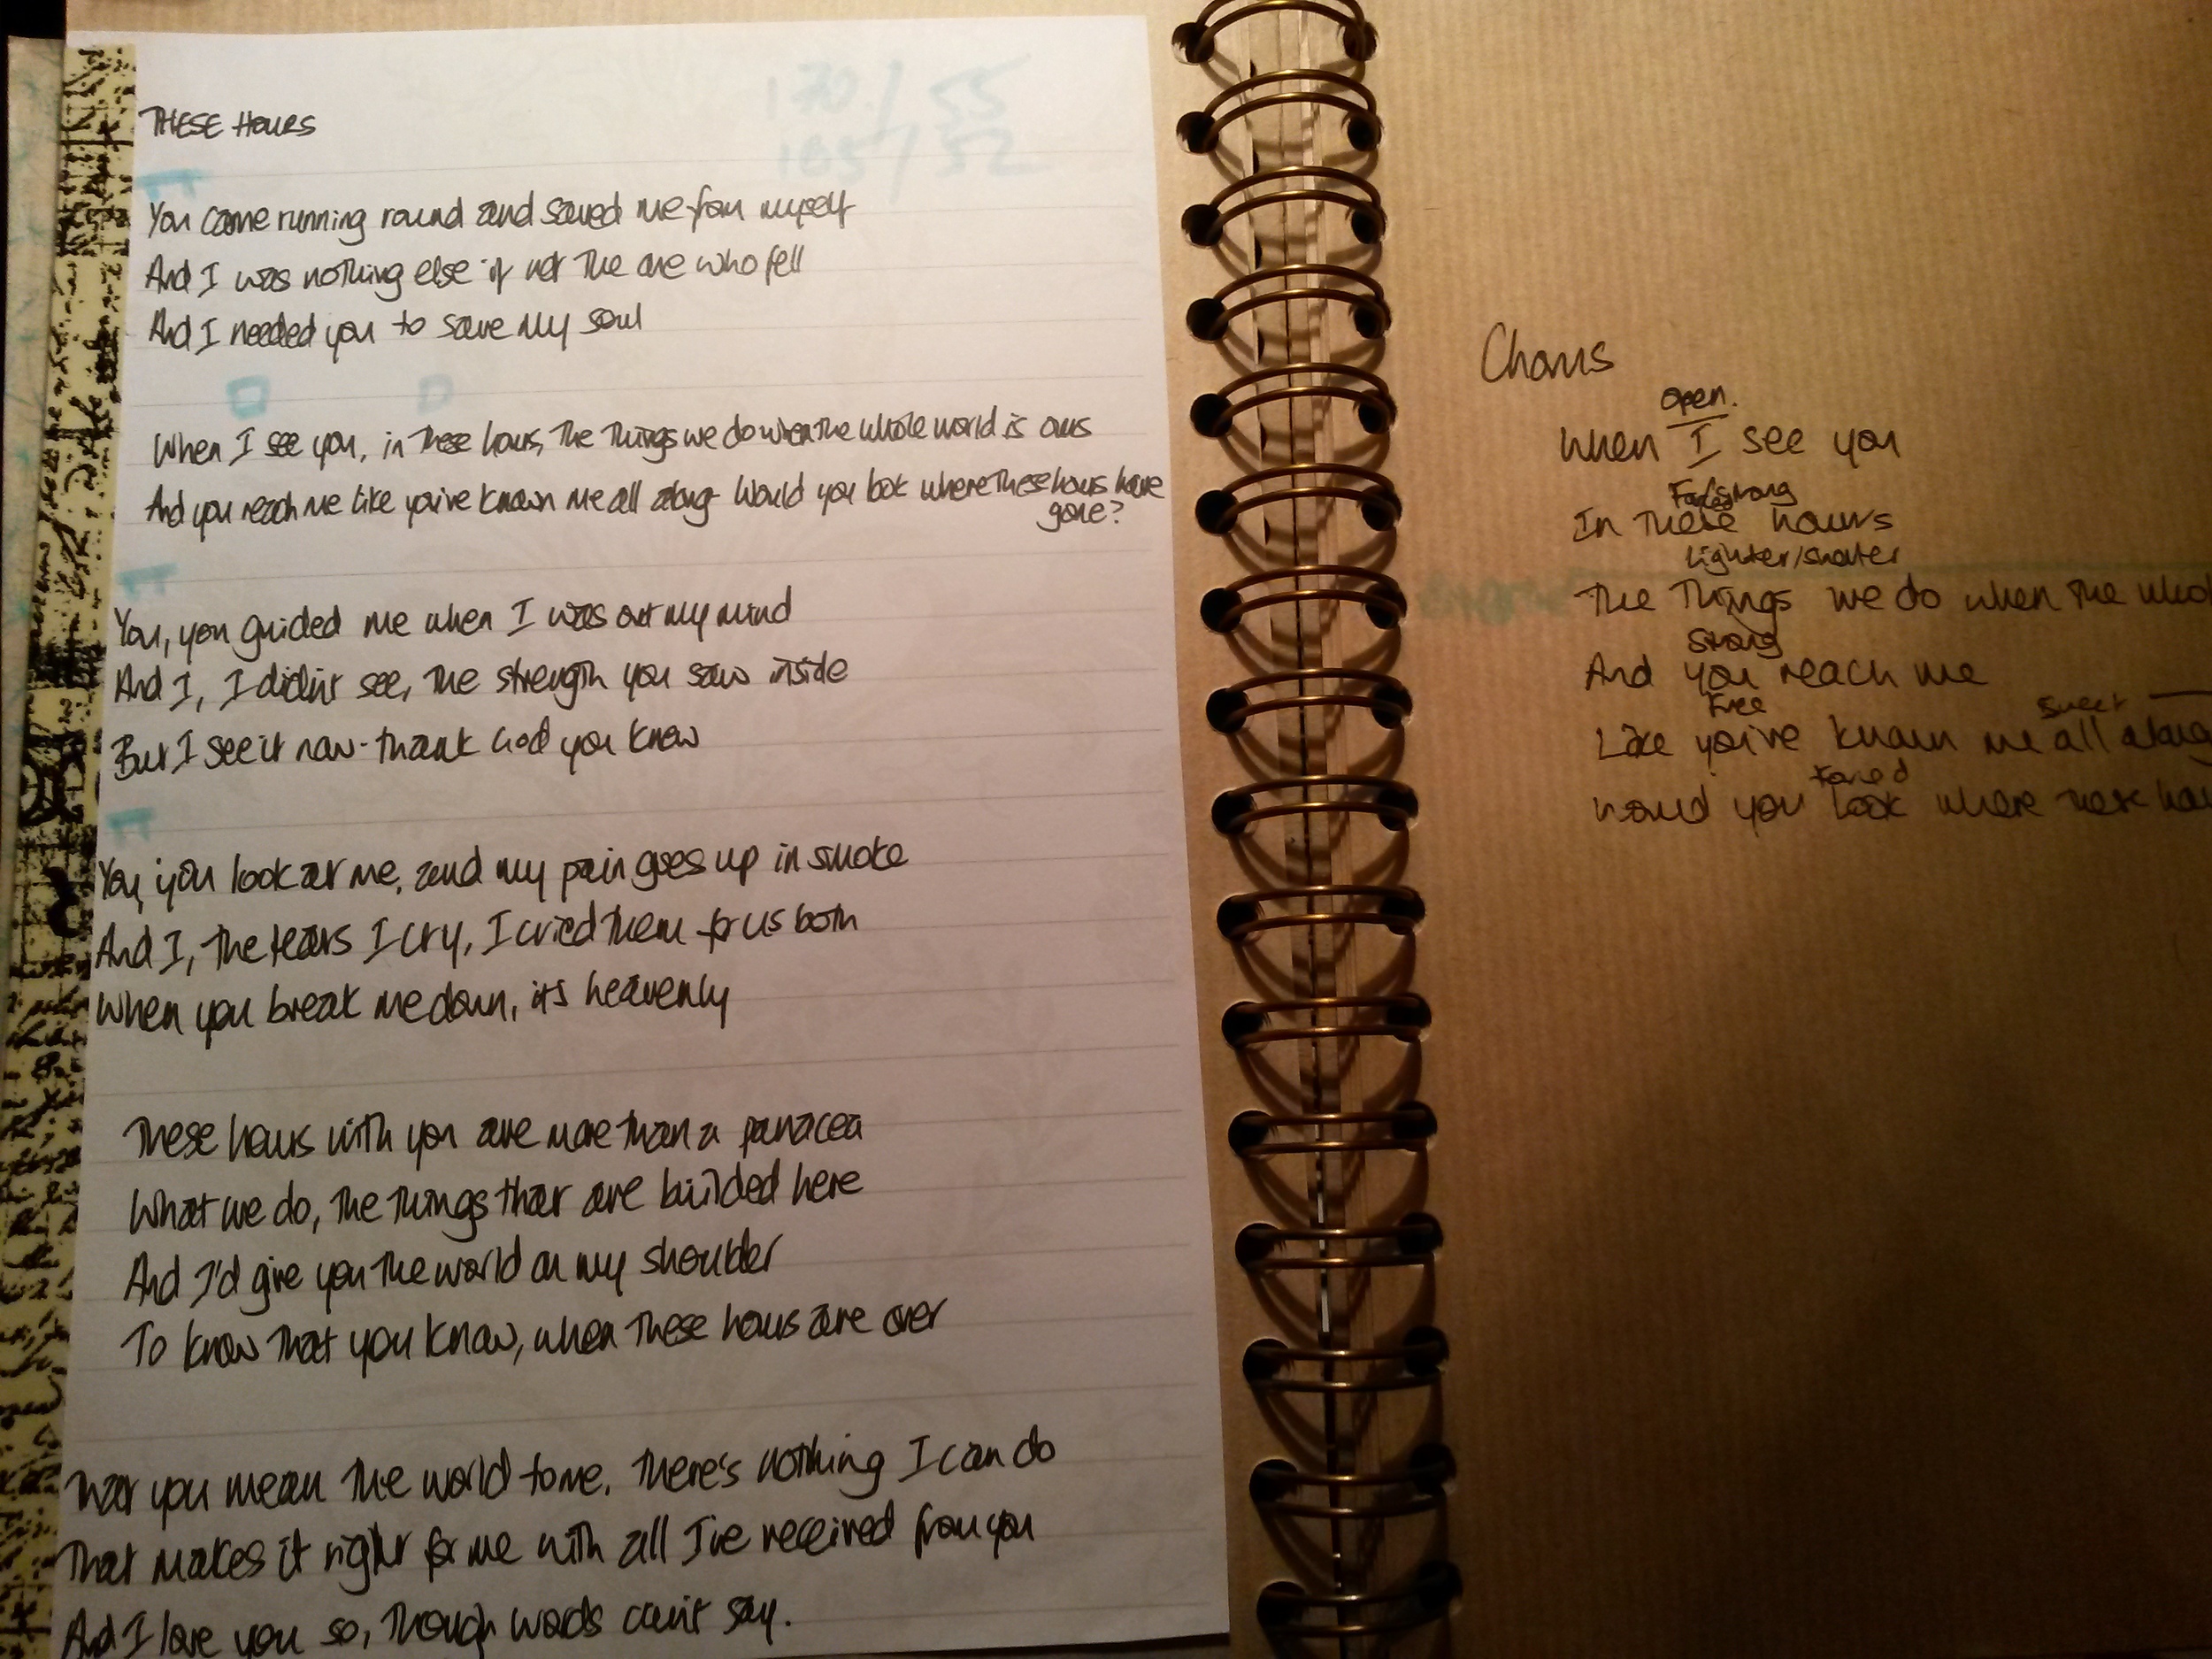 130/55
105/52
THESE HOURS
You came running round and saved me from myself
And I was nothing else if not the one who fell
And I needed you to save my soul
When I see you, in these hours, the things we do when the whole world is ours
And you reach me like you've known me all along - Would you look where these hours have
gone?
You, you guided me when I was out my mind
And I, I didn't see, the strength you saw inside
But I see it now - thank God you knew
You, you look at me, and my pain goes up in smoke
And I, the tears I cry, I cried them for us both
When you break me down, it's heavenly
These hours with you are more than a panacea
What we do, the things that are builded here
And I'd give you the world on my shoulder
To know that you know, when these hours are over
That you mean the world to me. There's nothing I can do
That makes it right for me with all I've received from you
And I love you so, though words can't say.
Chorus
Open.
When I see you
Forced strong
In these hours
Lighter/shorter
The things we do when the whol
Strong
And you reach me
Free sweet
Like you've known me all along
Forced
Would you look where these hou